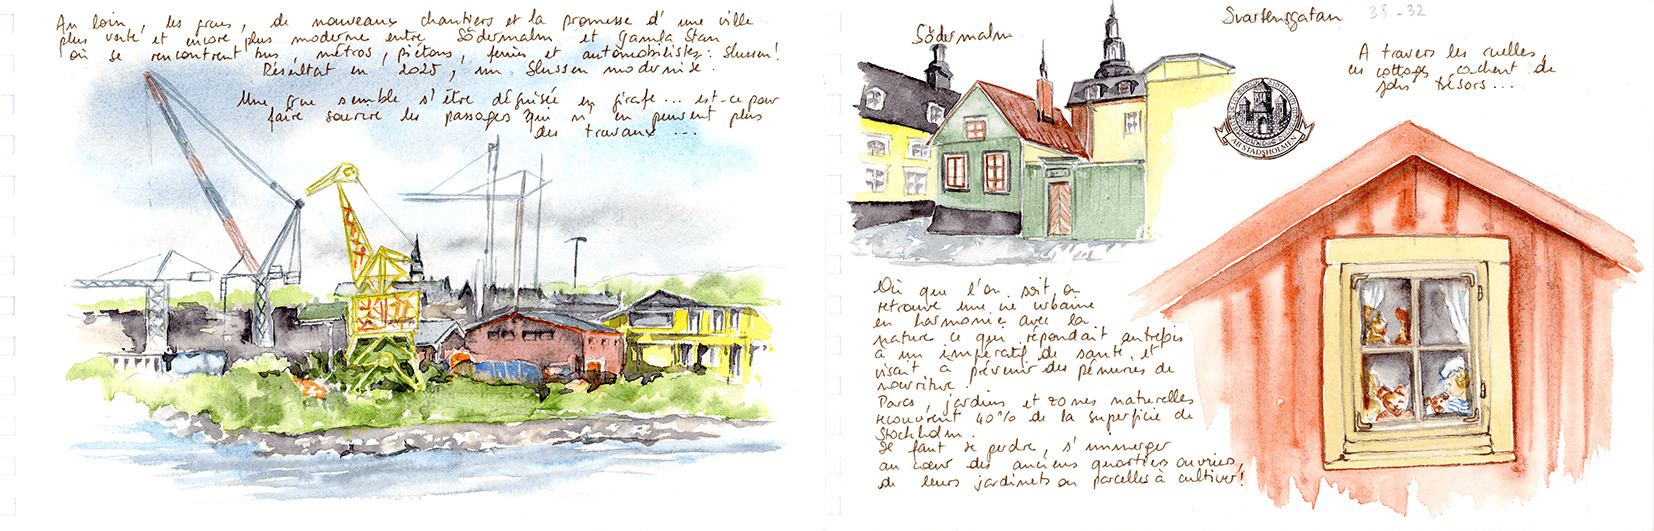 Au loin, les grues, de nouveaux chantiers et la promesse d'une ville
plus verte et encore plus moderne entre Södermalm et Gamla Stan
où se rencontrent bus, métros, piétons, ferries et automobilistes : Slussen!
Résultat en 2025, un Slussen modernisé.
Une grue semble s'être déguisée en girafe... est-ce pour
faire sourire les passages qui n'en peuvent plus
des travaux ...
Södermalm
Svartensgatan 38-32
A travers les ruelles,
ces cottages cachent de
jolis trésors...
AB STADSHOLMEN
Où que l'on soit, on
retrouve une vie urbaine
en harmonie avec la
nature ce qui répondait autrefois
à un impératif de santé, et
visait à prévenir des pénuries de
nourriture.
Parcs, jardins et zones naturelles
recouvrent 40% de la superficie de
Stockholm.
Il faut se perdre, s'immerger
au cœur des anciens quartiers ouvriers,
de leurs jardinets ou parcelles à cultiver!